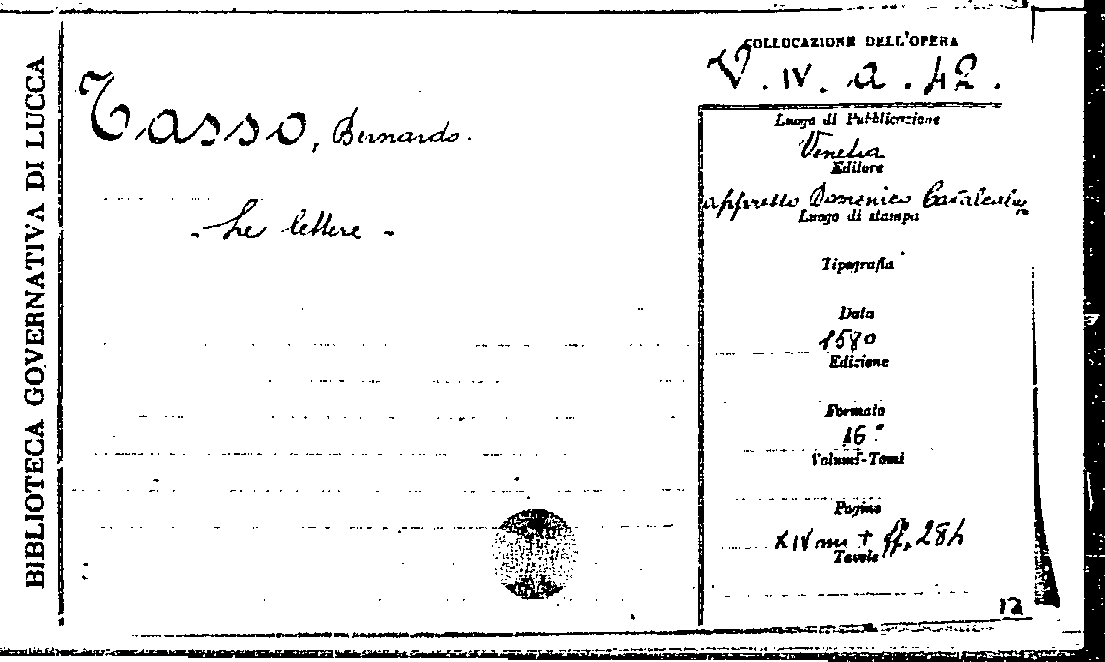 BIBLIOTECA GOVERNATIVA DI LUCCA
Tasso, Bernardo.
- Le lettere -
COLLOCAZIONE DELL'OPERA
V. IV. a. 42.
Luogo di Pubblicazione
Venetia
Editore
appresso Domenico
Luogo di stampa
Tipografia
Data
1580
Edizione
Formato
16°
Volumi-Tomi
Pagine
XIV nn + ff. 284
Tavole
12